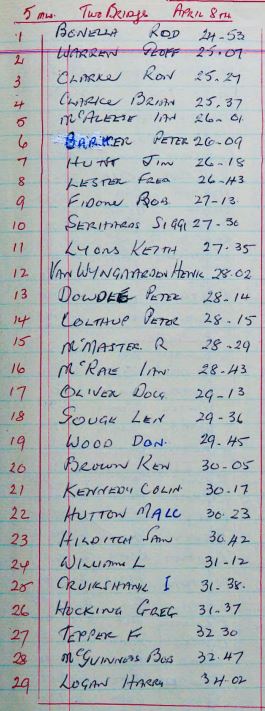 5 mls. Two Bridge April 8th
1 Bonella Rod 24-53
2 Warren Geoff 25.07
3 Clarke Ron 25-27
4 Clarke Brian 25.37
5 McAleese Ian 26-01
6 Barker Peter 26-09
7 Hunt Jim 26-18
8 Lester Fred 26-43
9 Fidow Bob 27-13
10 Serhards Siggi 27-30
11 Lyons Keith 27.35
12 Van Wyngaardon Henk 28.02
13 Dowde Peter 28-14
14 Colthup Peter 28-15
15 McMaster R 28-29
16 McRae Ian 28-43
17 Oliver Doug 29-13
18 Gouge Len 29-36
19 Wood Don. 29.45
20 Brown Ken 30-05
21 Kennedy Colin 30.17
22 Hutton Malc 30.23
23 Hilditch Sam 30.42
24 William L 31-12
25 Cruikshank I 31-38.
26 Hocking Greg 31-37
27 Tepper K 32 30
28 McGuinness Bob 32.47
29 Logan Harry 34.02